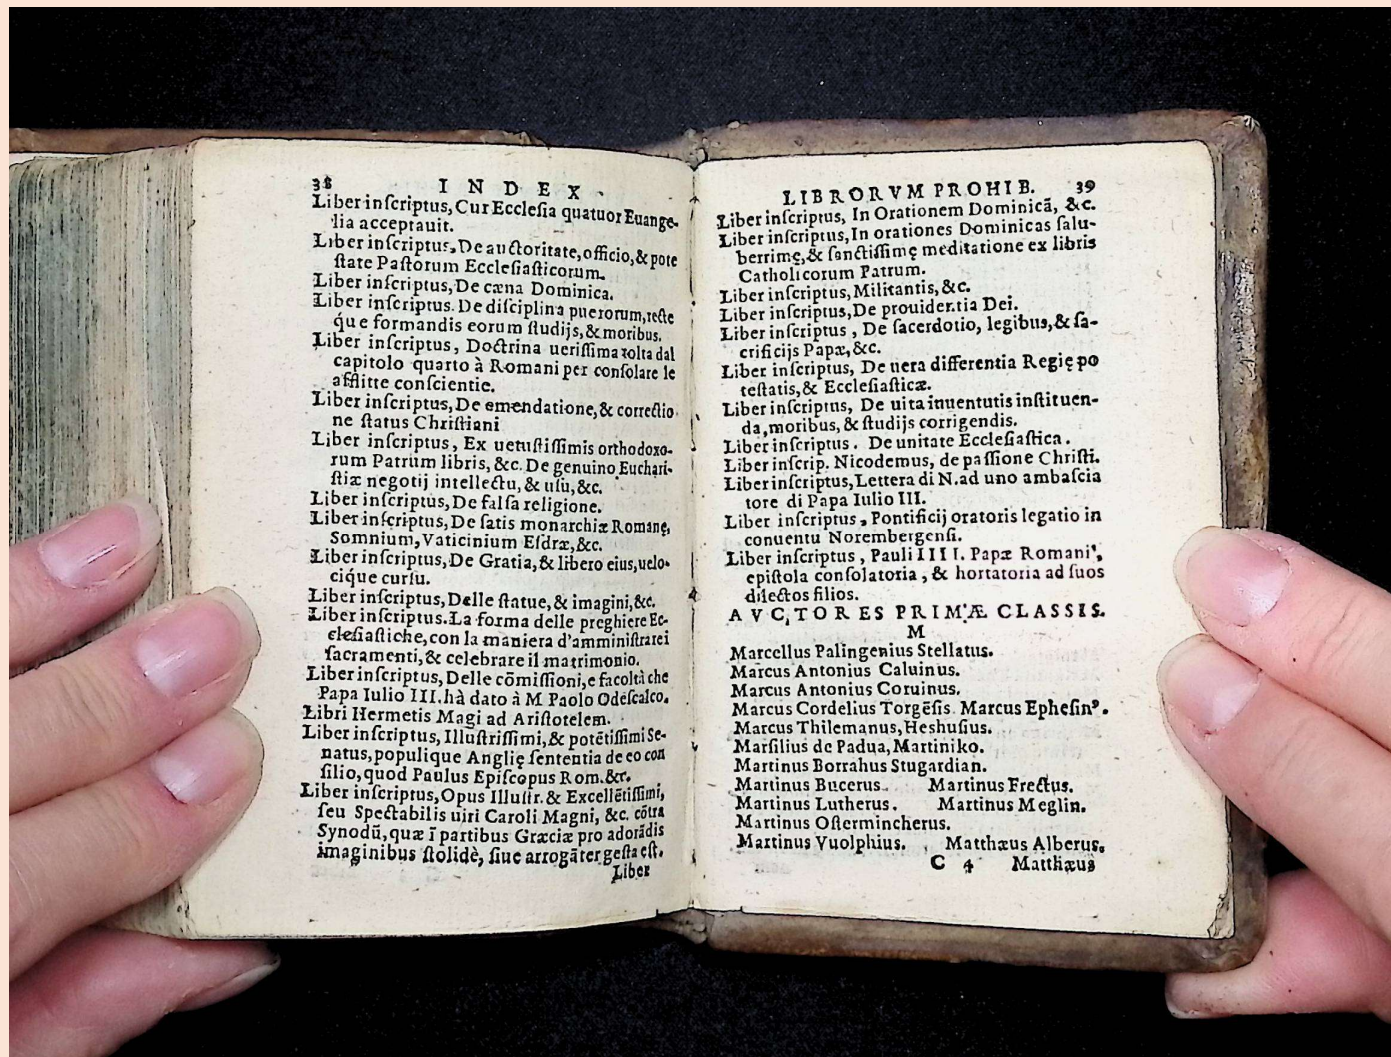 38 INDEX.
Liber inſcriptus, Cur Eccleſia quatuor Euange-
lia acceptauit.
Liber inſcriptus, De auctoritate, officio, & pote
ſtate Paſtorum Eccleſiaſticorum.
Liber inſcriptus, De cæna Dominica.
Liber inſcriptus. De diſciplina puerorum, recte
que formandis eorum ſtudijs, & moribus.
Liber inſcriptus, Doctrina ueriſſima tolta dal
capitolo quarto à Romani per conſolare le
afflitte conſcientie.
Liber inſcriptus, De emendatione, & correctio
ne ſtatus Chriſtiani
Liber inſcriptus, Ex uetuſtiſſimis orthodoxo-
rum Patrum libris, &c. De genuino Euchari-
ſtiæ negotij intellectu, & uſu, &c.
Liber inſcriptus, De falſa religione.
Liber inſcriptus, De ſatis monarchiæ Romanę,
Somnium, Vaticinium Eſdræ, &c.
Liber inſcriptus, De Gratia, & libero eius, uelo-
cique curſu.
Liber inſcriptus, Delle ſtatue, & imagini, &c.
Liber inſcriptus. La forma delle preghiere Ec-
cleſiaſtiche, con la maniera d'amminiſtrare i
ſacramenti, & celebrare il matrimonio.
Liber inſcriptus, Delle cōmiſſioni, e facoltà che
Papa Iulio III. hà dato à M Paolo Odeſcalco.
Libri Hermetis Magi ad Ariſtotelem.
Liber inſcriptus, Illuſtriſſimi, & potētiſſimi Se-
natus, populique Anglię ſententia de eo con
ſilio, quod Paulus Epiſcopus Rom. &c.
Liber inſcriptus, Opus Illuſtr. & Excellētiſſimi,
ſeu Spectabilis uiri Caroli Magni, &c. cōtra
Synodū, quæ ī partibus Græciæ pro adorādis
imaginibus ſtolidè, ſiue arrogāter geſta eſt.
Liber
LIBRORVM PROHIB. 39
Liber inſcriptus, In Orationem Dominicā, &c.
Liber inſcriptus, In orationes Dominicas ſalu-
berrimę, & ſanctiſſimę meditatione ex libris
Catholicorum Patrum.
Liber inſcriptus, Militantis, &c.
Liber inſcriptus, De prouidentia Dei.
Liber inſcriptus, De ſacerdotio, legibus, & ſa-
crificijs Papæ, &c.
Liber inſcriptus, De uera differentia Regię po
teſtatis, & Eccleſiaſticæ.
Liber inſcriptus, De uita iuuentutis inſtituen-
da, moribus, & ſtudijs corrigendis.
Liber inſcriptus. De unitate Eccleſiaſtica.
Liber inſcrip. Nicodemus, de paſſione Chriſti.
Liber inſcriptus, Lettera di N. ad uno ambaſcia
tore di Papa Iulio III.
Liber inſcriptus, Pontificij oratoris legatio in
conuentu Norembergenſi.
Liber inſcriptus, Pauli IIII. Papæ Romani,
epiſtola conſolatoria, & hortatoria ad ſuos
dilectos filios.
AVCTORES PRIMÆ CLASSIS.
M
Marcellus Palingenius Stellatus.
Marcus Antonius Caluinus.
Marcus Antonius Coruinus.
Marcus Cordelius Torgēſis. Marcus Epheſinꝰ.
Marcus Thilemanus, Heshuſius.
Marſilius de Padua, Martiniko.
Martinus Borrahus Stugardian.
Martinus Bucerus. Martinus Frectus.
Martinus Lutherus. Martinus Meglin.
Martinus Oſtermincherus.
Martinus Vuolphius. Matthæus Alberus.
C 4 Matthæus